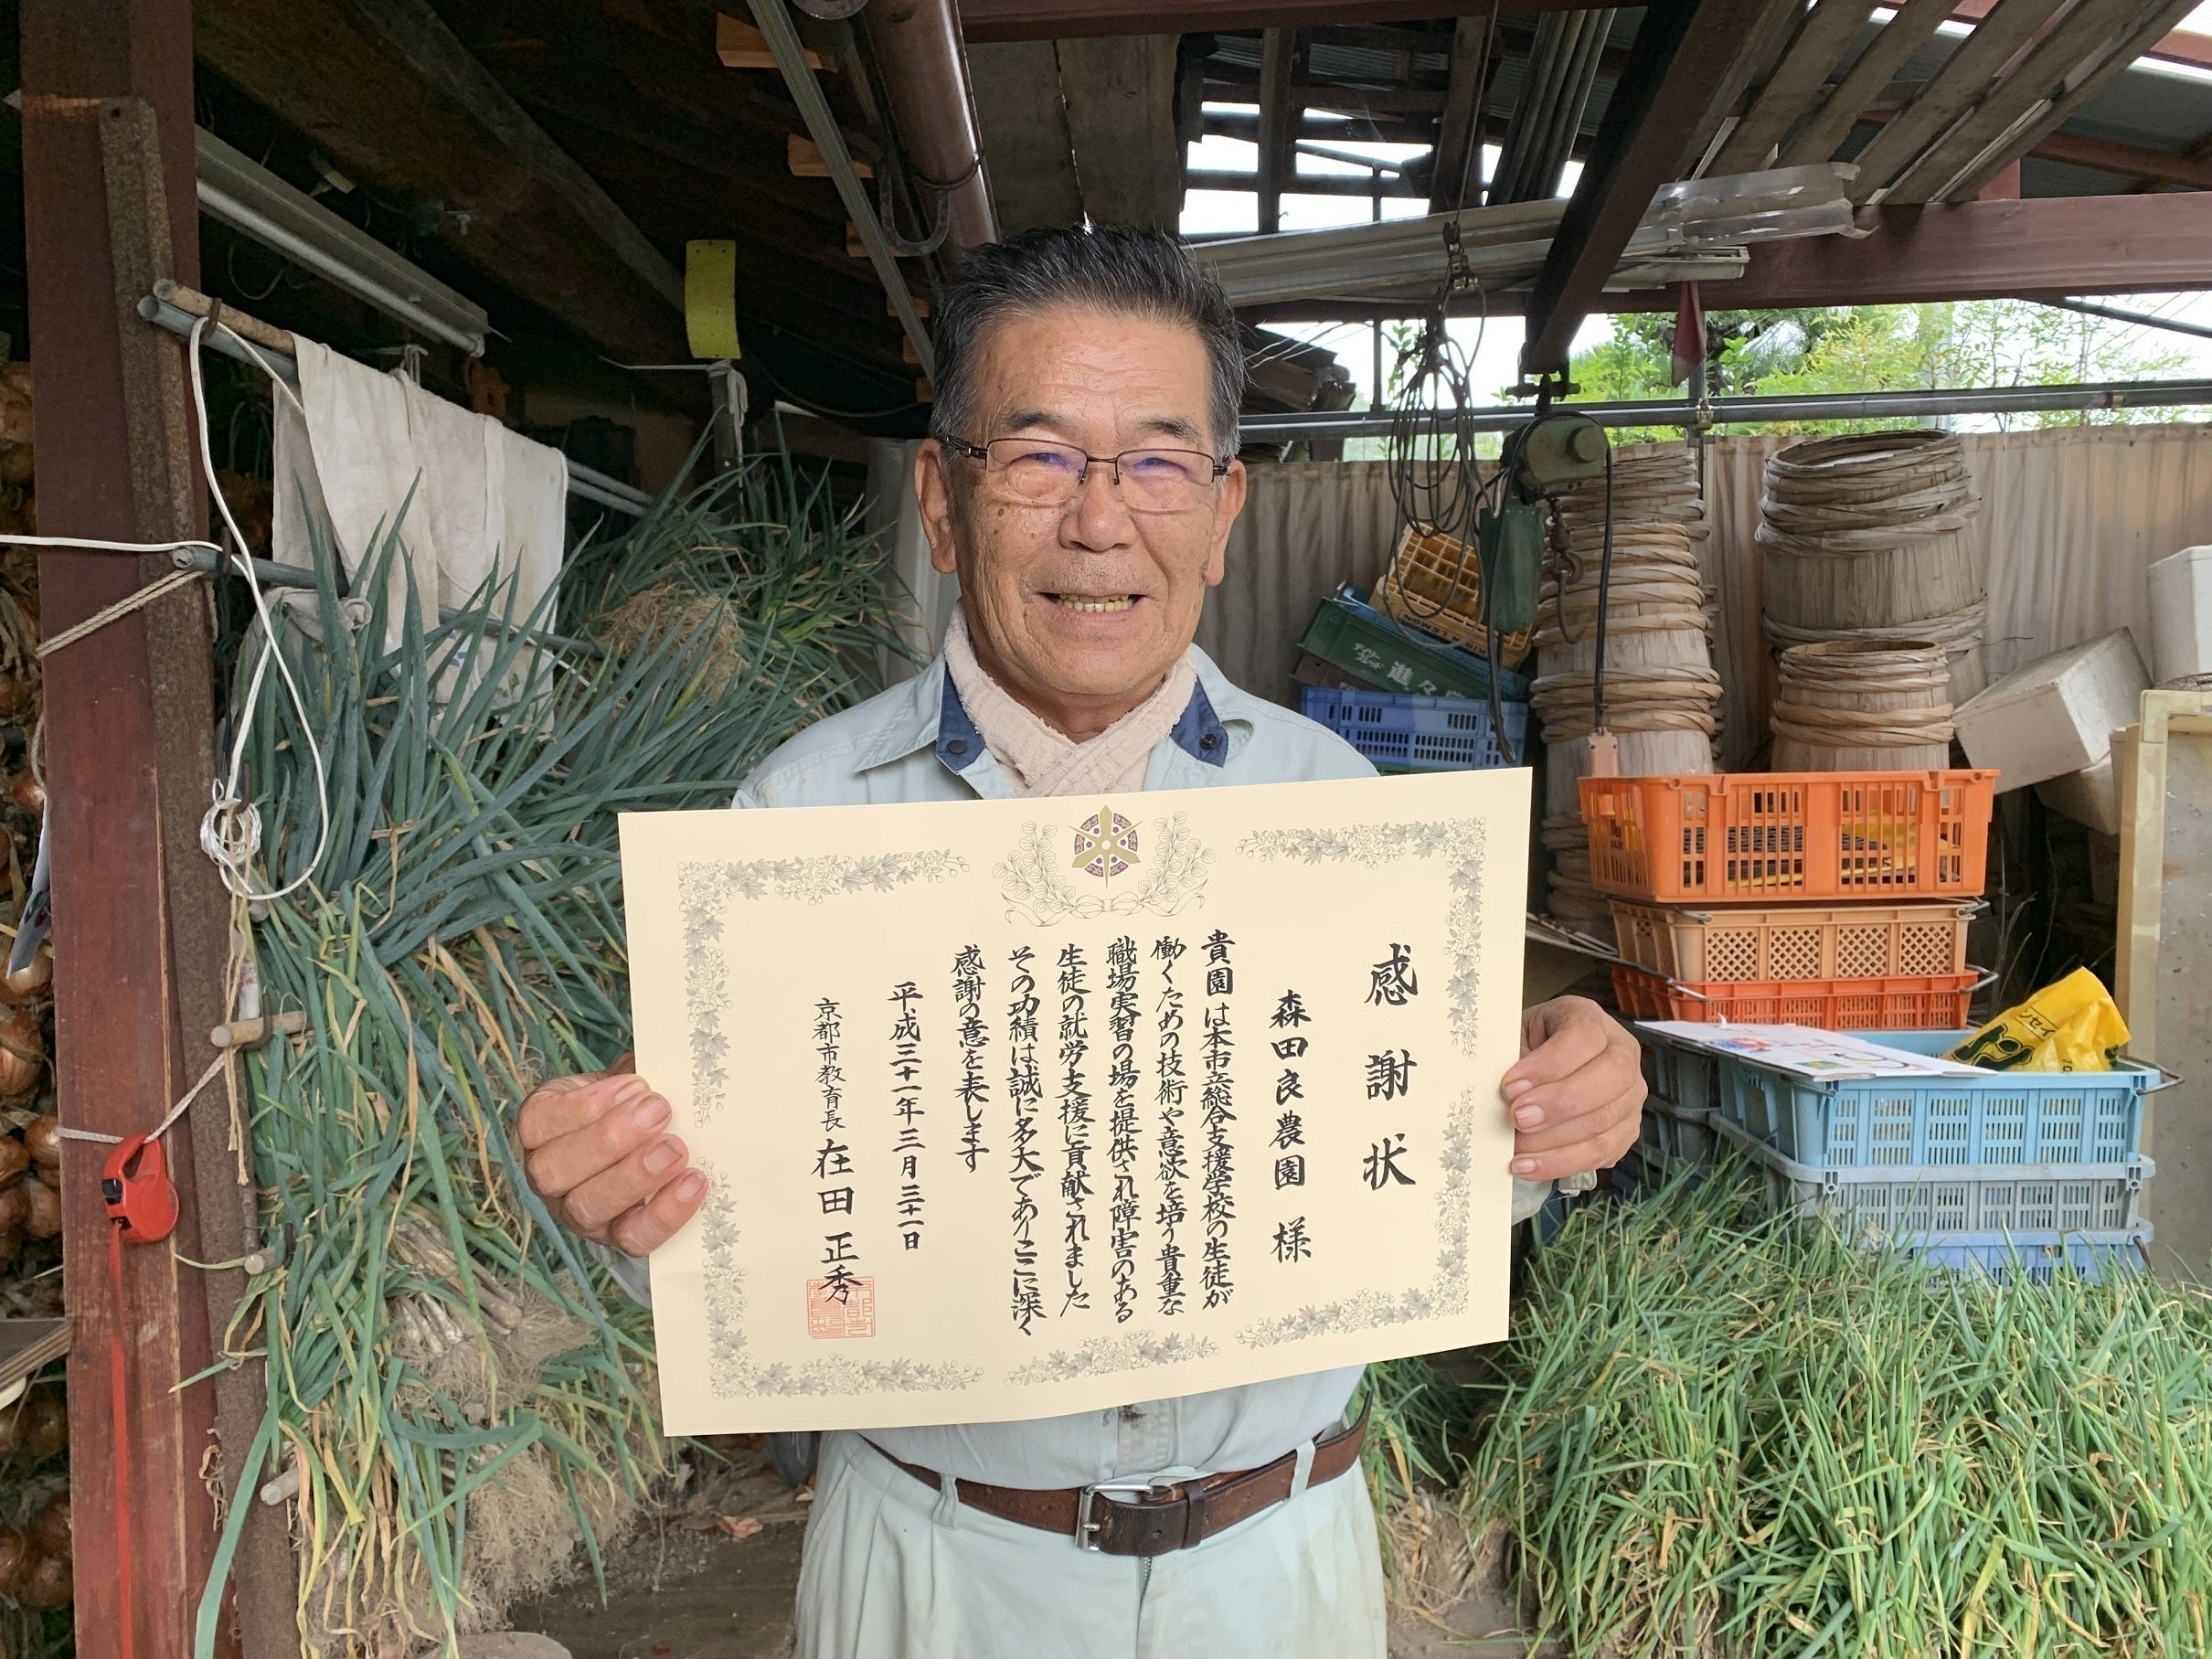 感謝状
森田良農園 様
貴園は本市立総合支援学校の生徒が
働くための技術や意欲を培う貴重な
職場実習の場を提供され障害のある
生徒の就労支援に貢献されました
その功績は誠に多大でありここに深く
感謝の意を表します
平成三十一年三月三十一日
京都市教育長 在田正秀
デイリー
ブレッド
進々堂